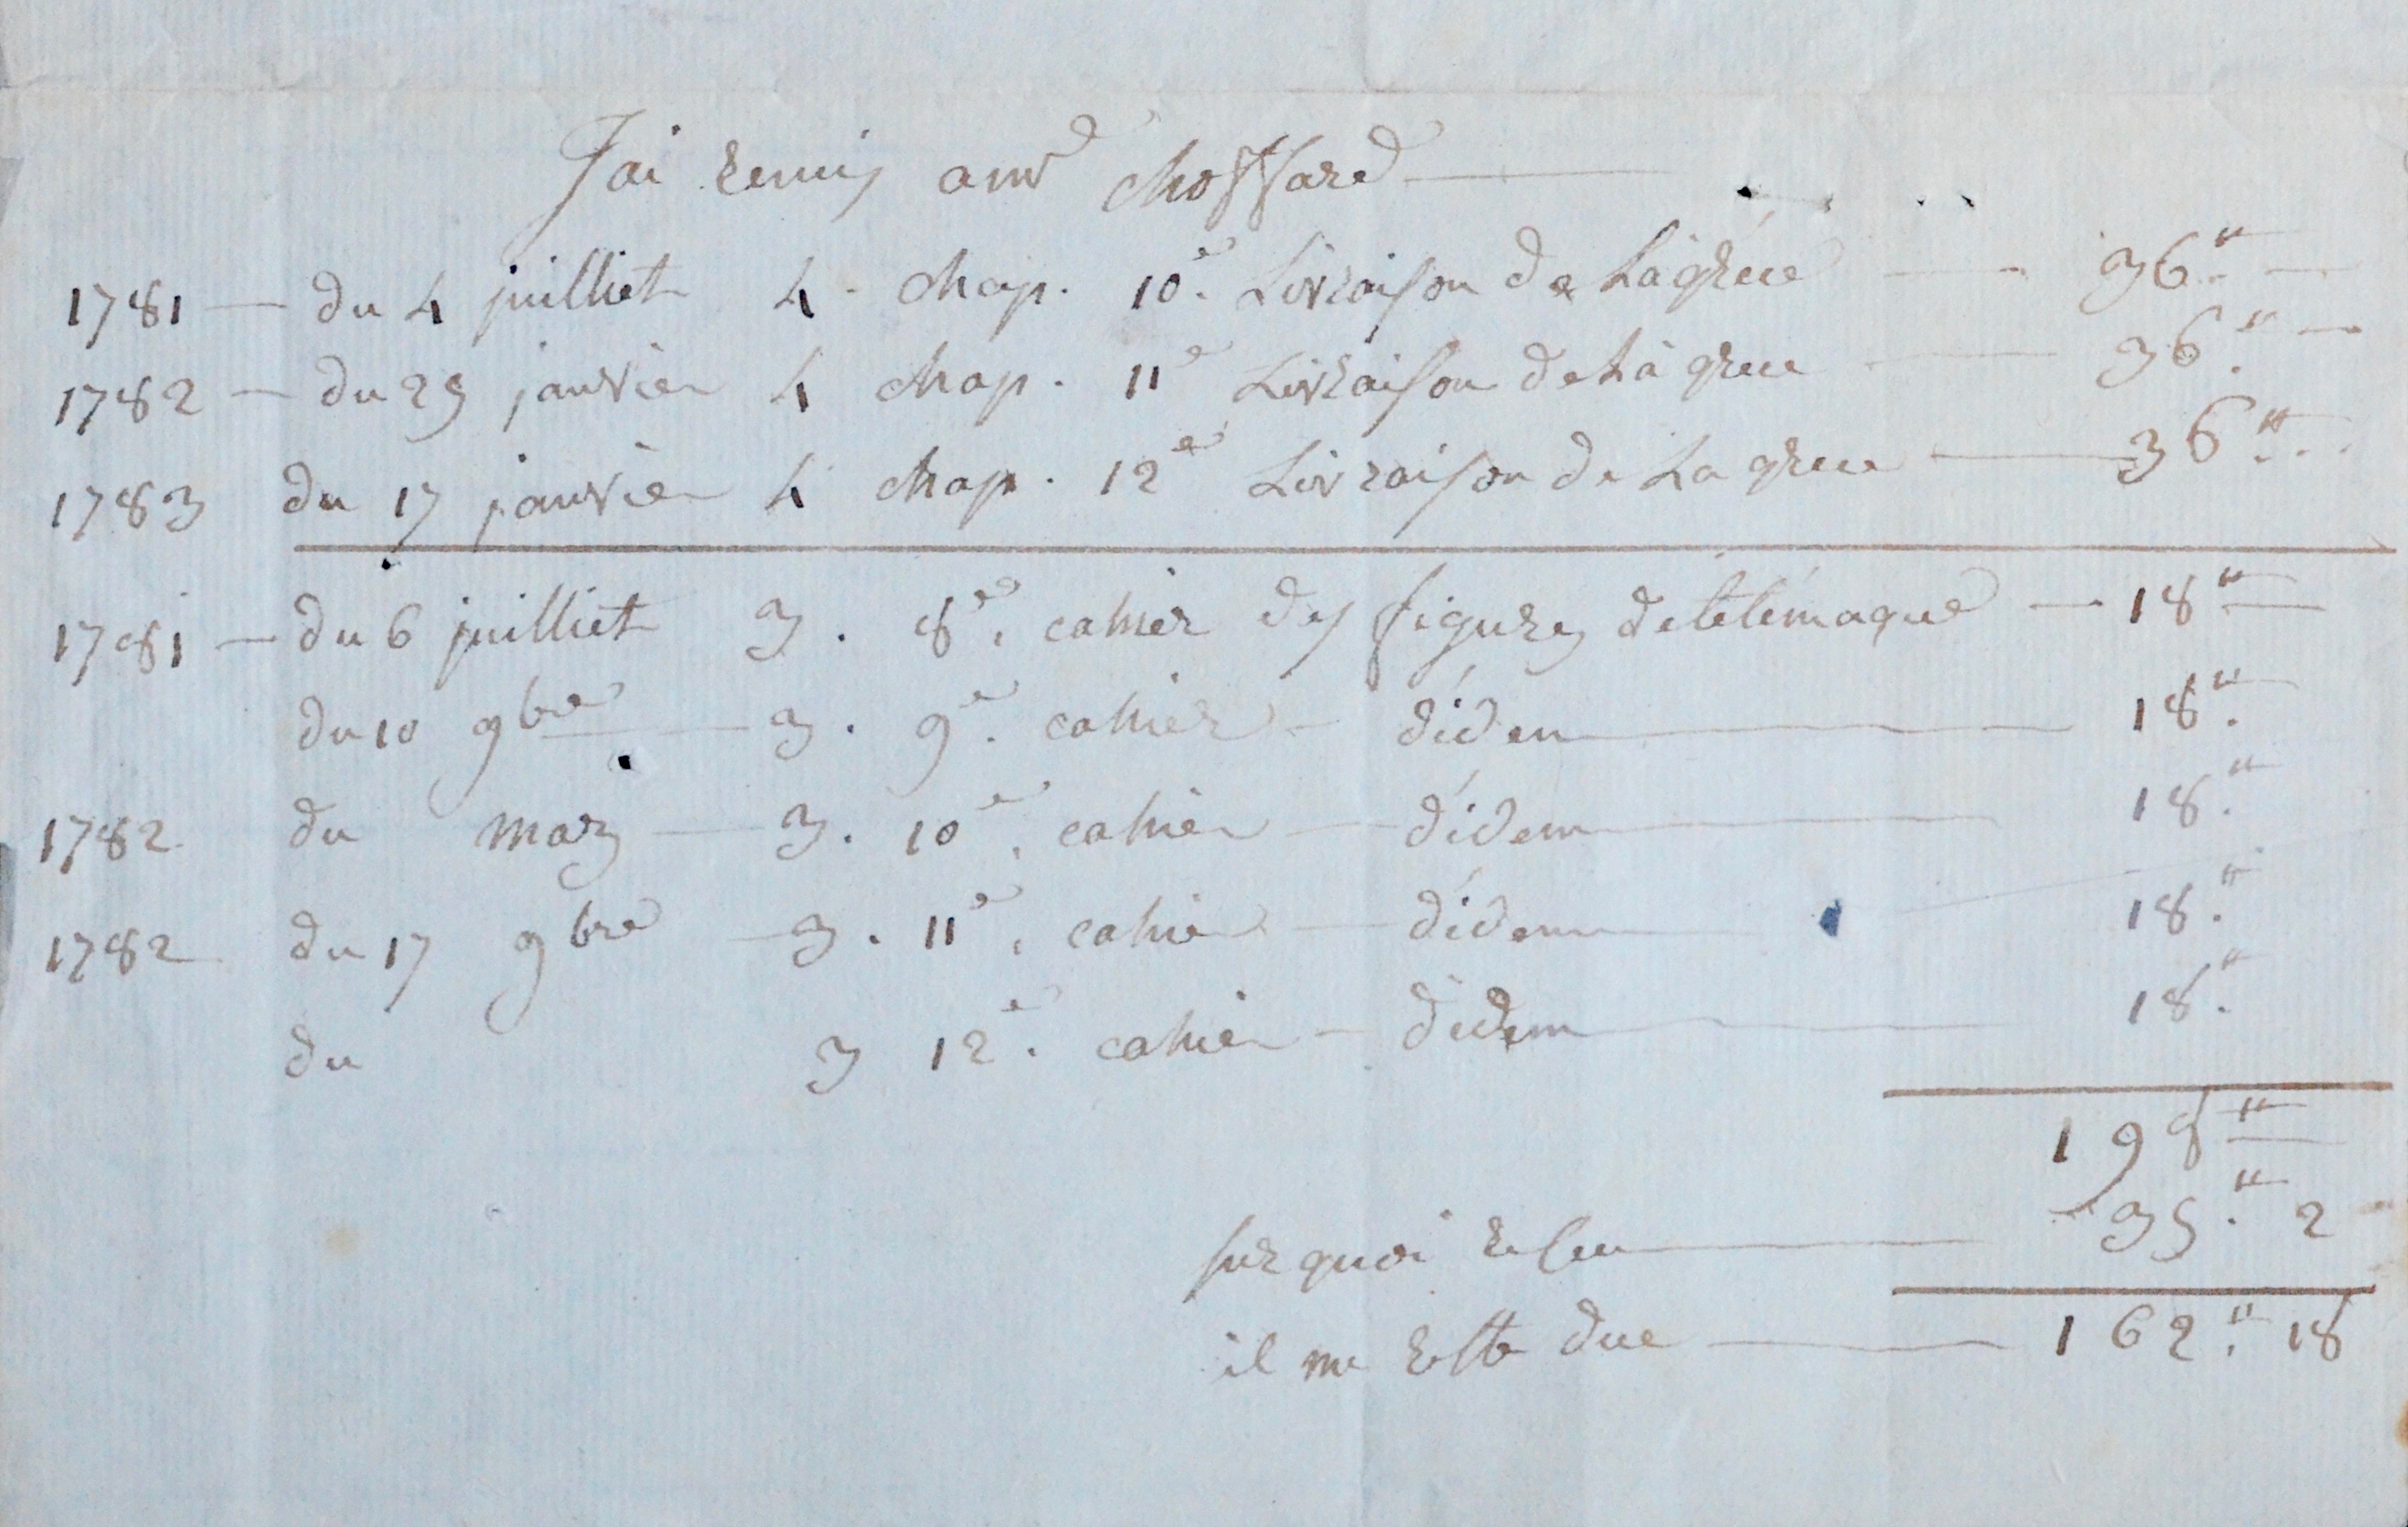 Jai remis a mr choffard
1781 — du 4 juilliet 4 chap. 10e. Livraison de La grèce — 36"
1782 — du 25 janvier 4 chap. 11e Livraison de La grece — 36"
1783 du 17 janvier 4 chap. 12e Livraison de La grece — 36"
1781 — du 6 juilliet 3. 8e. cahier des figures de télémaque — 18"
du 10 9bre — 3. 9e. cahier — didem — 18"
1782 du mars — 3. 10e. cahier — didem — 18"
1782 du 17 9bre — 3. 11e. cahier — didem — 18"
du 3 12e. cahier — didem — 18"
198"
sur quoi Reseu — 35" 2
il me Reste due — 162" 18